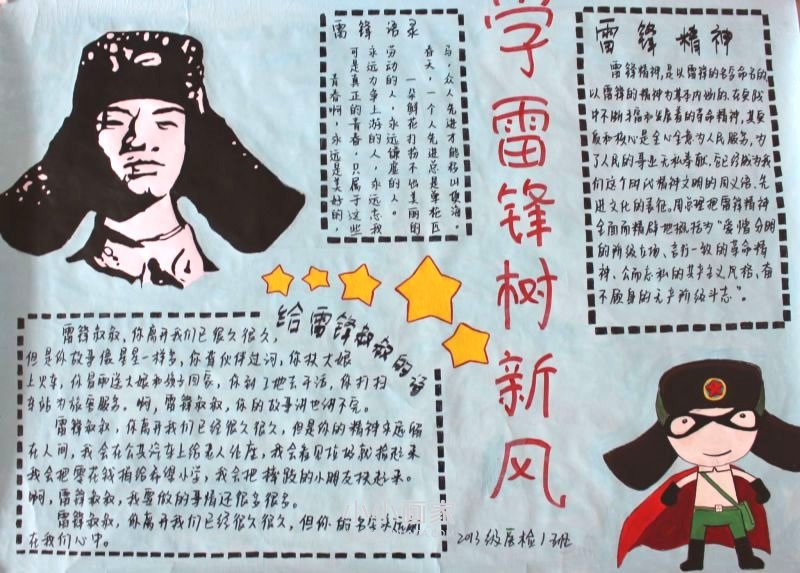 学雷锋树新风
雷锋语录
青春啊，永远是美好的，
可是真正的青春，只属于这些
永远力争上游的人，永远忘我
劳动的人，永远谦虚的人。
一朵鲜花打扮不出美丽的
春天，一个人先进总是单枪匹
马，众人先进才能移山填海。
雷锋精神
雷锋精神，是以雷锋的名字命名的，
以雷锋的精神为基本内涵的、在实践
中不断丰富和发展着的革命精神，其实
质和核心是全心全意为人民服务，为
了人民的事业无私奉献。它已经成为我
们这个时代精神文明的同义语、先
进文化的表征。周总理把雷锋精神
全面而精辟地概括为“爱憎分明
的阶级立场、言行一致的革命精
神、公而忘私的共产主义风格、奋
不顾身的无产阶级斗志”。
给雷锋叔叔的话
雷锋叔叔，你离开我们已很久很久，
但是你故事像星星一样多，你背伙伴过河，你扶大娘
上火车，你冒雨送大娘和孩子回家，你到工地去干活，你打扫
车站为旅客服务。啊，雷锋叔叔，你的故事讲也讲不完。
雷锋叔叔，你离开我们已经很久很久，但是你的精神永远留
在人间，我会在公共汽车上给老人让座，我会看见垃圾就捡起来
我会把零花钱捐给希望小学，我会把摔跤的小朋友扶起来。
啊，雷锋叔叔，我要做的事情还很多很多。
雷锋叔叔，你离开我们已经很久很久，但你的名字永远刻
在我们心中。
2013级医检1班